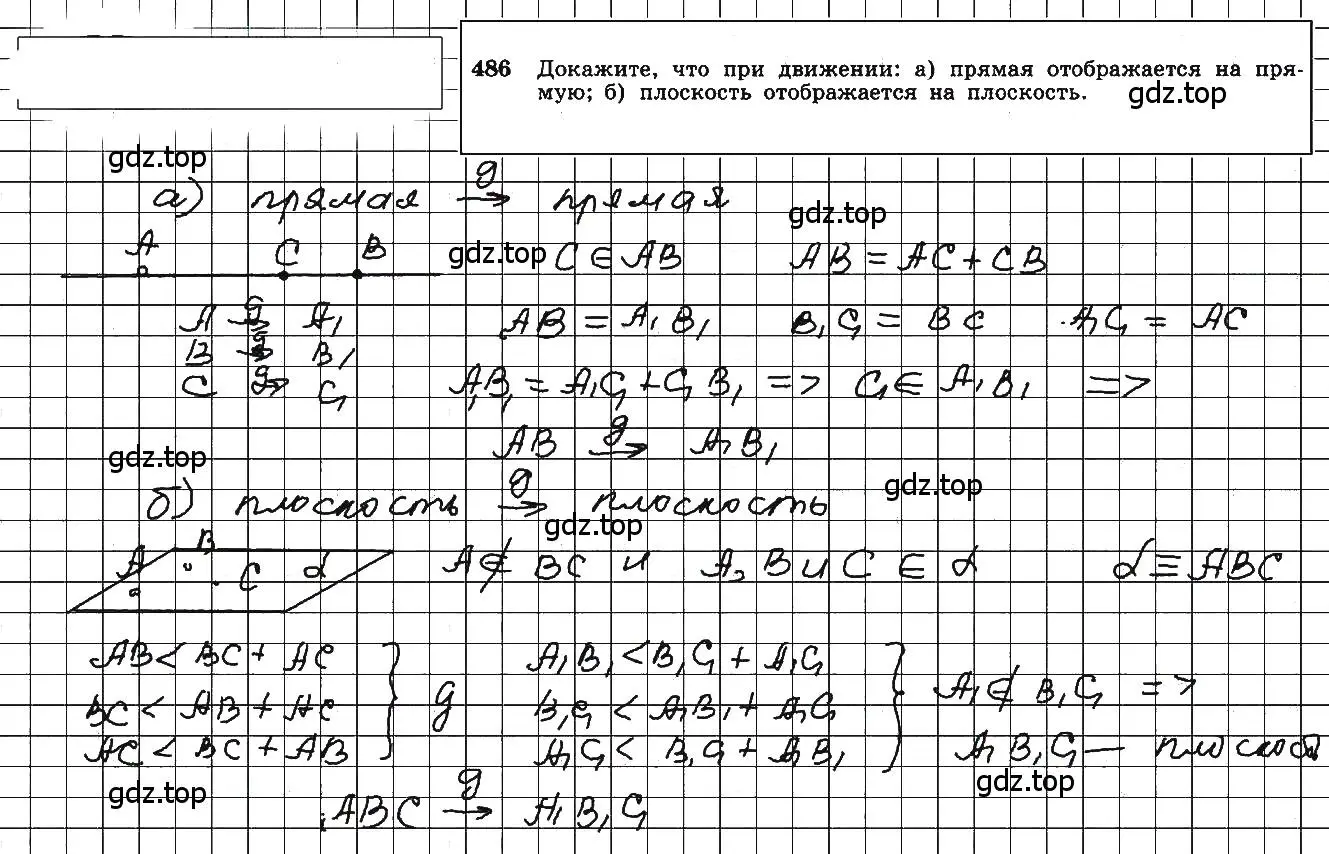 486 Докажите, что при движении: а) прямая отображается на пря-
мую; б) плоскость отображается на плоскость.
gdz.top
gdz.top
а) прямая g→ прямая
gdz.top
A C B gdz.top C ∈ AB AB = AC + CB
A g→ A₁ AB = A₁B₁ B₁C₁ = BC A₁C₁ = AC
B g→ B₁
C g→ C₁ A₁B₁ = A₁C₁ + C₁B₁ => C₁ ∈ A₁B₁ =>
AB g→ A₁B₁
gdz.top
gdz.top
б) плоскость g→ плоскость
gdz.top
A B C α A ∉ BC и A, B и C ∈ α α ≡ ABC
AB < BC + AC } A₁B₁ < B₁C₁ + A₁C₁ }
BC < AB + AC } g B₁C₁ < A₁B₁ + A₁C₁ } A₁ ∉ B₁C₁ =>
AC < BC + AB } A₁C₁ < B₁C₁ + A₁B₁ } A₁B₁C₁ — плоскость
gdz.top
gdz.top
ABC g→ A₁B₁C₁